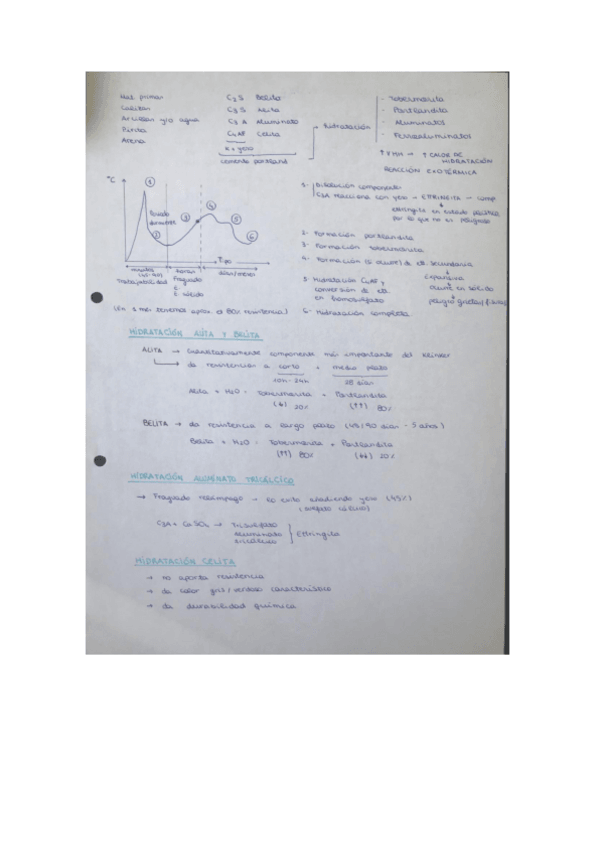 Mat. primas
Calizas
Arcillas y/o agua
Pirita
Arena
C2S Belita
C3S Alita
C3A Aluminato
C4AF Celita
+ yeso
cemento portland
Hidratación
- Tobermorita
- Portlandita
- Aluminatos
- Ferroaluminatos
↑ CALOR DE HIDRATACIÓN
REACCIÓN EXOTÉRMICA
ºC
1
2
3
4
5
6
Periodo durmiente
Tpo
minutos
horas
días/meses
Trabajabilidad
Fraguado
E sólido
1- Disolución componentes
C3A reacciona con yeso → ETTRINGITA
ettringita en estado plástico
por lo que no es peligroso
2- Formación portlandita
3- Formación tobermorita
4- Formación (si ocurre) de et. secundaria
expansiva
ocurre en sólido
peligro grietas/fisuras
5- Hidratación C4AF y
conversión de et.
en monosulfato
6- Hidratación completa
(En 1 mes tenemos aprox. el 80% resistencia)
HIDRATACIÓN ALITA Y BELITA
ALITA → Cuantitativamente componente más importante del klinker
da resistencia a corto + medio plazo
10h - 24h 28 días
Alita + H2O - Tobermorita + Portlandita
20% (↑↑) 80%
BELITA → da resistencia a largo plazo (45/90 días - 5 años)
Belita + H2O - Tobermorita + Portlandita
(↑↑) 80% (↓↓) 20%
HIDRATACIÓN ALUMINATO TRICÁLCICO
→ Fraguado relámpago - se evita añadiendo yeso
(sulfato cálcico)
C3A + CaSO4 → Trisulfato
aluminato
tricálcico } Ettringita
HIDRATACIÓN CELITA
→ no aporta resistencia
→ da color gris/verdoso característico
→ da durabilidad química